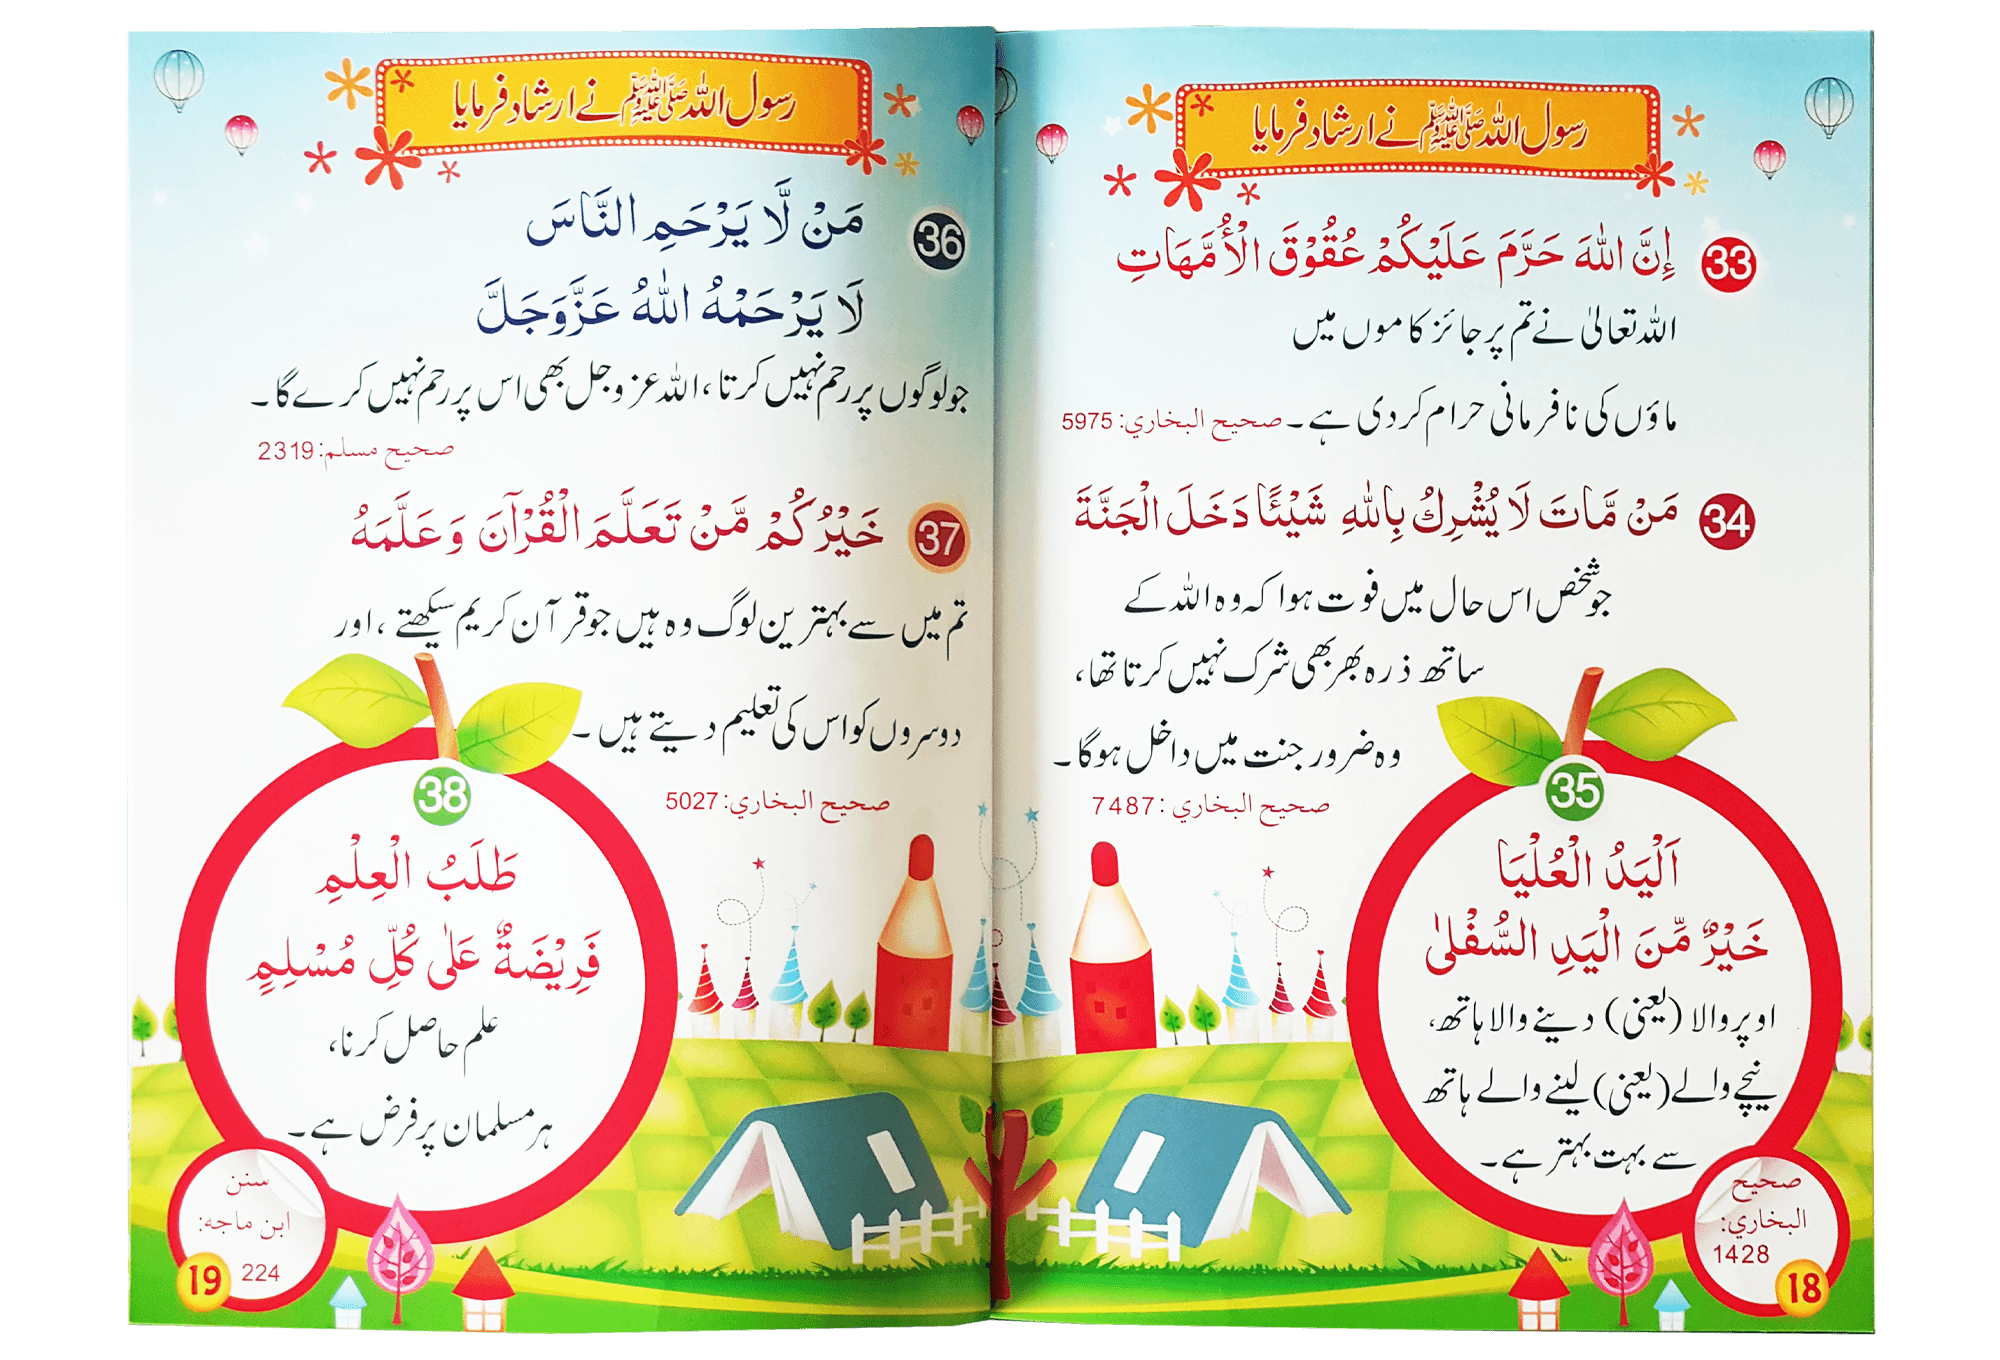 رسول اللہ ﷺ نے ارشاد فرمایا
33
إِنَّ اللهَ حَرَّمَ عَلَيْكُمْ عُقُوْقَ الْأُمَّهَاتِ
اللہ تعالیٰ نے تم پر جائز کاموں میں
ماؤں کی نافرمانی حرام کر دی ہے۔ صحيح البخاري: 5975
34
مَنْ مَّاتَ لَا يُشْرِكُ بِاللهِ شَيْئًا دَخَلَ الْجَنَّةَ
جو شخص اس حال میں فوت ہوا کہ وہ اللہ کے
ساتھ ذرہ بھر بھی شرک نہیں کرتا تھا،
وہ ضرور جنت میں داخل ہوگا۔
صحيح البخاري: 7487
35
اَلْيَدُ الْعُلْيَا
خَيْرٌ مِّنَ الْيَدِ السُّفْلىٰ
اوپر والا (یعنی) دینے والا ہاتھ،
نیچے والے (یعنی) لینے والے ہاتھ
سے بہت بہتر ہے۔
صحيح
البخاري:
1428
18
رسول اللہ ﷺ نے ارشاد فرمایا
36
مَنْ لَّا يَرْحَمِ النَّاسَ
لَا يَرْحَمْهُ اللهُ عَزَّوَجَلَّ
جو لوگوں پر رحم نہیں کرتا، اللہ عز وجل بھی اس پر رحم نہیں کرے گا۔
صحيح مسلم: 2319
37
خَيْرُكُمْ مَّنْ تَعَلَّمَ الْقُرْآنَ وَعَلَّمَهُ
تم میں سے بہترین لوگ وہ ہیں جو قرآن کریم سیکھتے، اور
دوسروں کو اس کی تعلیم دیتے ہیں۔
صحيح البخاري: 5027
38
طَلَبُ الْعِلْمِ
فَرِيْضَةٌ عَلىٰ كُلِّ مُسْلِمٍ
علم حاصل کرنا،
ہر مسلمان پر فرض ہے۔
سنن
ابن ماجه:
224
19